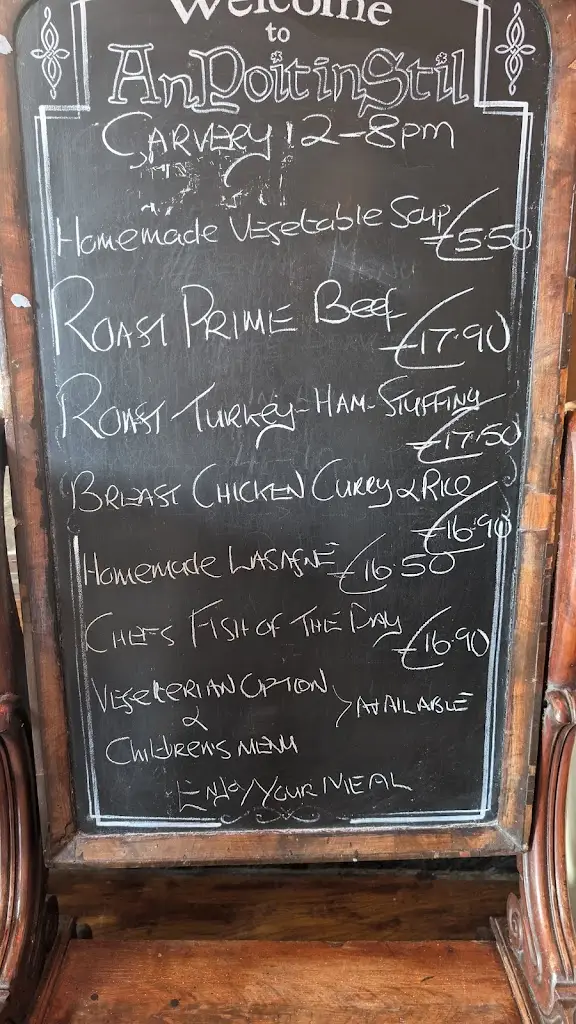 Welcome
to
An Poitin Stil
CARVERY 12-8pm
Homemade Vegetable Soup €5.50
ROAST PRIME Beef €17.90
ROAST TURKEY-HAM-STUFFING €17.50
BREAST CHICKEN CURRY & RICE €16.90
Homemade LASAGNE €16.50
CHEFS FISH OF THE DAY €16.90
VEGETERIAN OPTION
&
CHILDREN'S MENU
> AVAILABLE
ENJOY YOUR MEAL